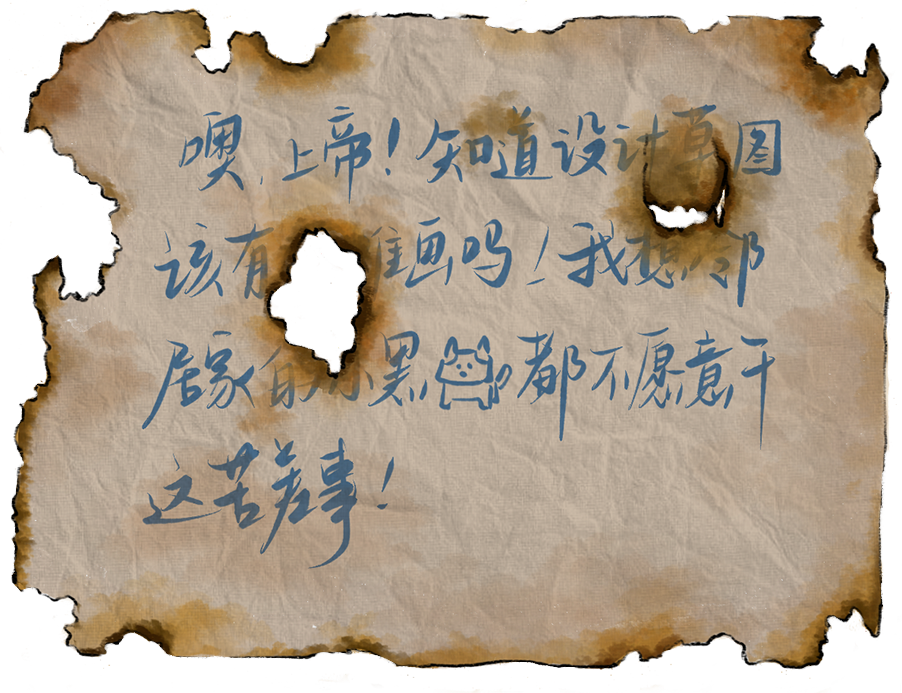 噢,上帝!知道设计草图
该有 难画吗!我想邻
居家的小黑 都不愿意干
这苦差事!